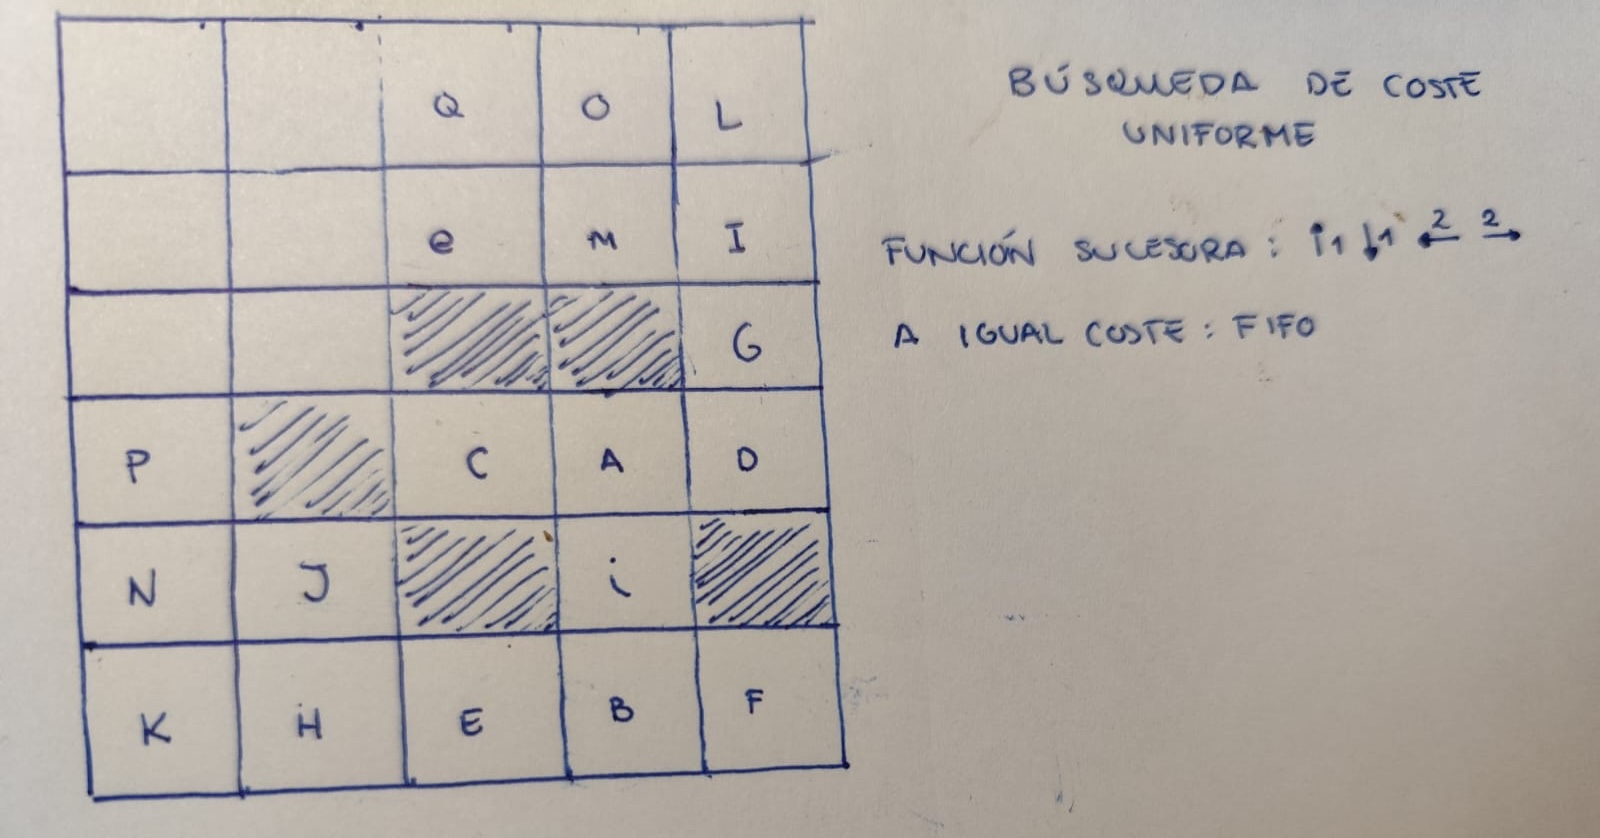 Q O L
e M I
G
P C A D
N J i
K H E B F
BÚSQUEDA DE COSTE
UNIFORME
FUNCIÓN SUCESORA : ↑1 ↓1 ←2 2→
A IGUAL COSTE : FIFO